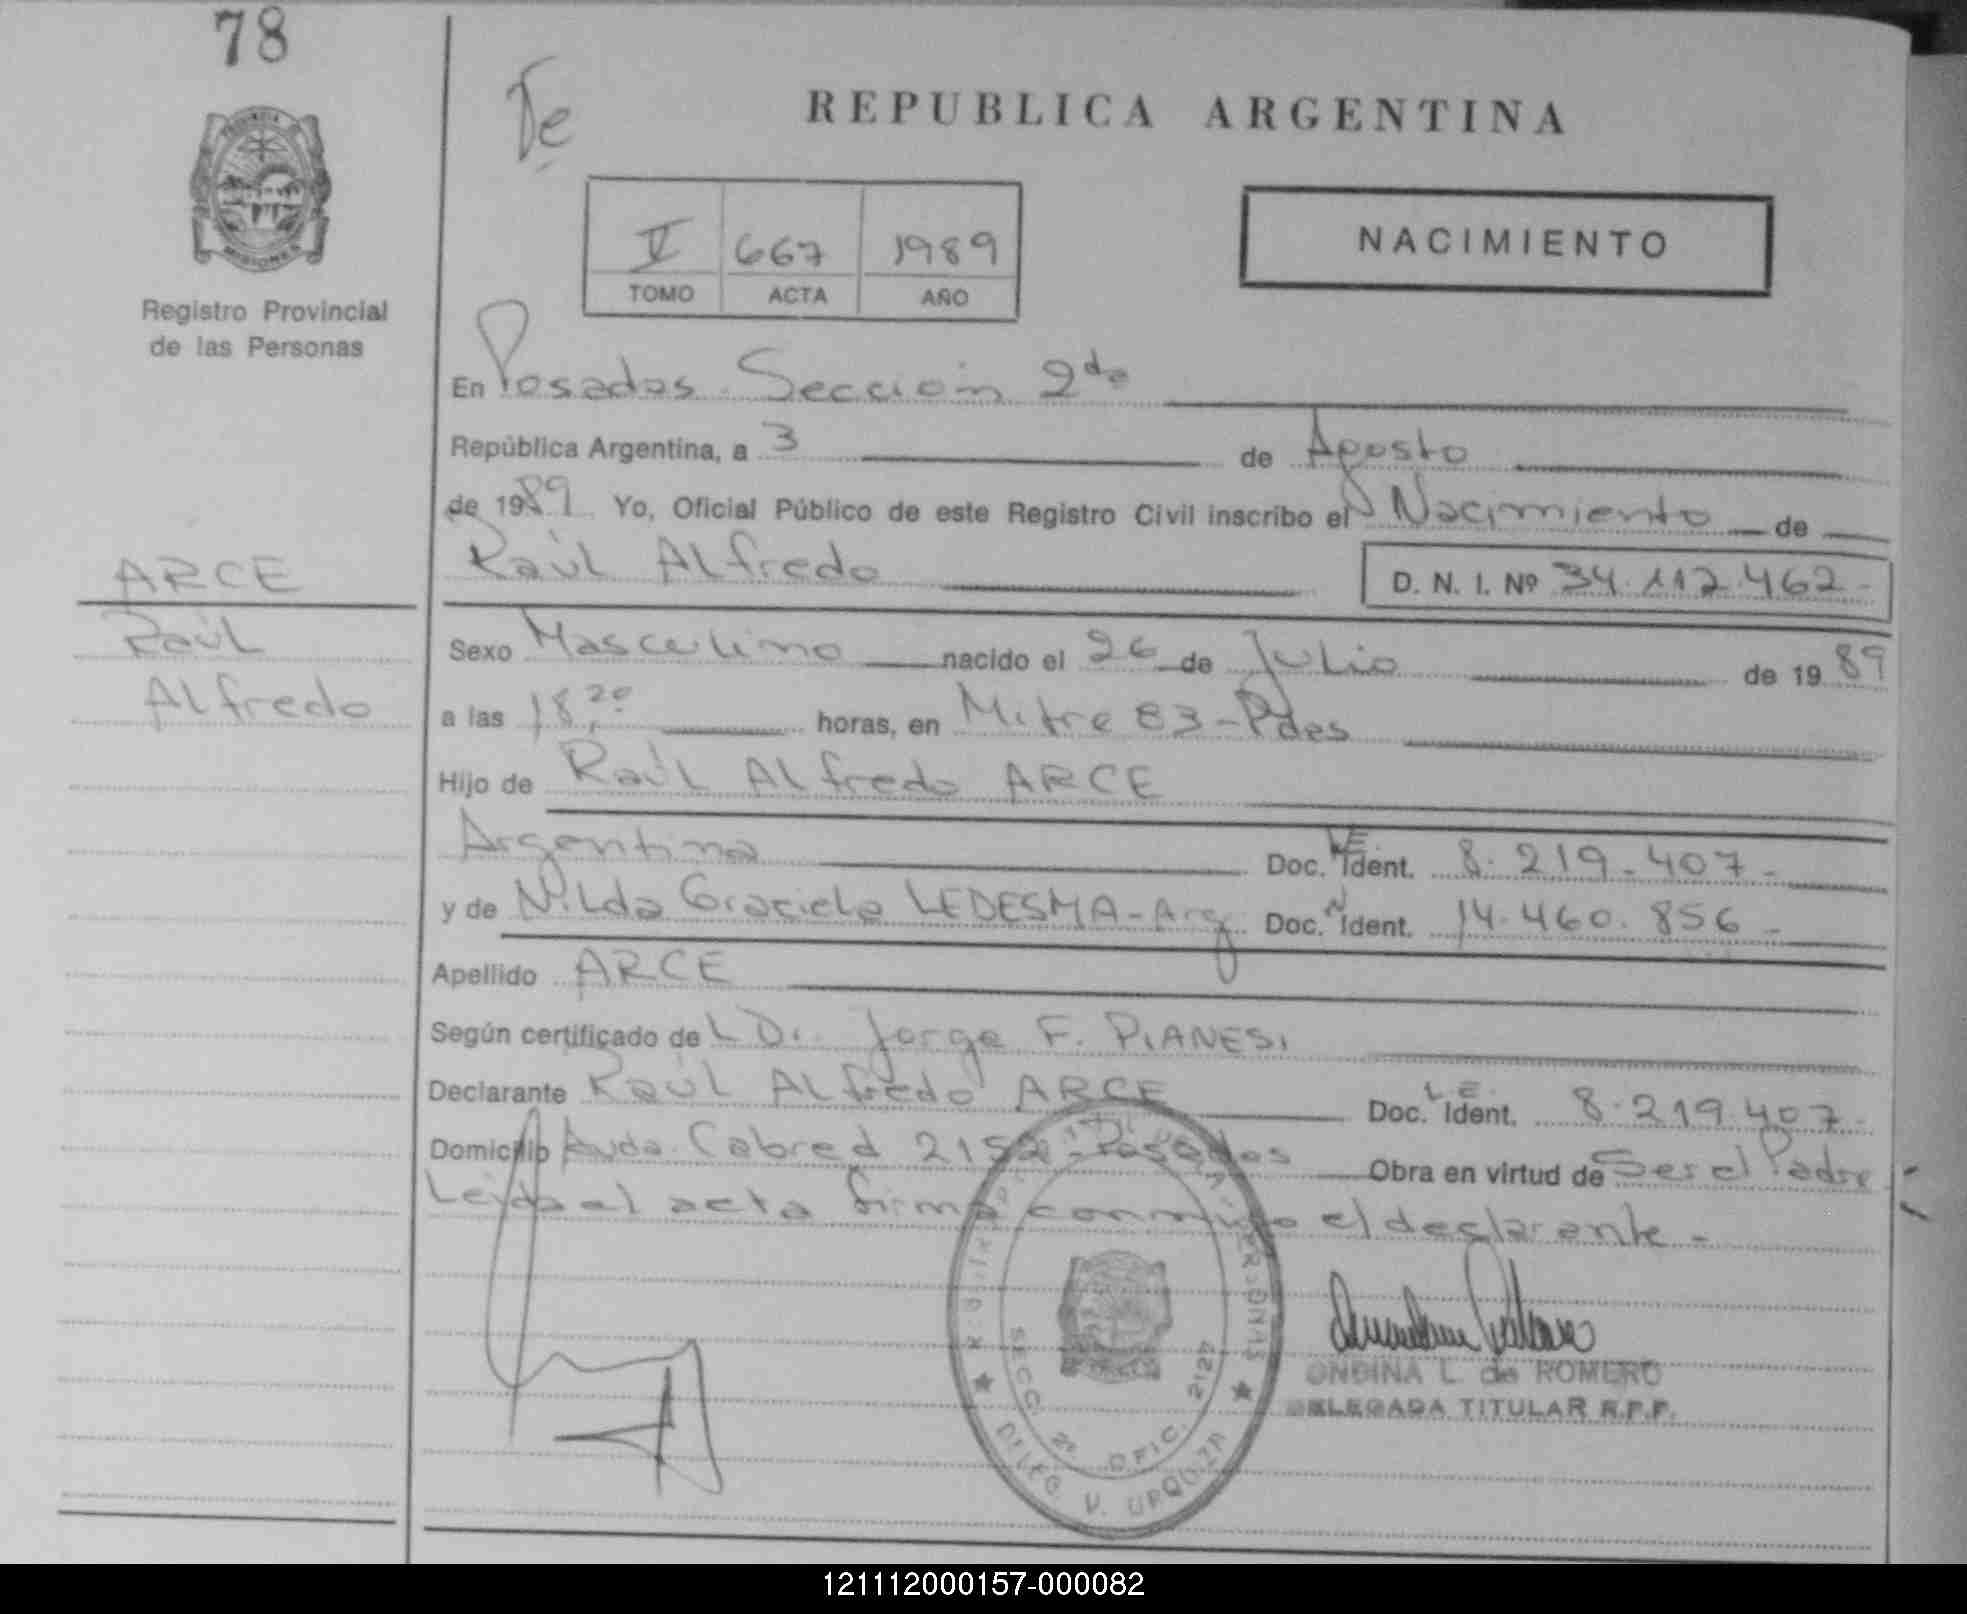 78
Te
REPUBLICA ARGENTINA
V 667 1989
TOMO ACTA AÑO
NACIMIENTO
PROVINCIA
MISIONES
Registro Provincial
de las Personas
En Posadas Sección 2da
República Argentina, a 3 de Agosto
de 1989 Yo, Oficial Público de este Registro Civil inscribo el Nacimiento de
Raúl Alfredo D. N. I. Nº 34.112.462-
ARCE
Raúl
Alfredo
Sexo Masculino nacido el 26 de Julio de 1989
a las 18,20 horas, en Mitre 83-Pdas
Hijo de Raúl Alfredo ARCE
Argentina Doc. L.E. Ident. 8.219.407-
y de Nilda Graciela LEDESMA-Arg. Doc. N Ident. 14.460.856-
Apellido ARCE
Según certificado de L Dr. Jorge F. PIANESI
Declarante Raúl Alfredo ARCE Doc. L.E. Ident. 8.219.407-
Domicilio Avda. Cabred 2152-Posadas Obra en virtud de Ser el Padre
Leída el acta firma conmigo el declarante-
SECC. 2ª OFIC. 2127
DELEG. V. URQUIZA
ONDINA L. de ROMERO
DELEGADA TITULAR R.P.P.
121112000157-000082